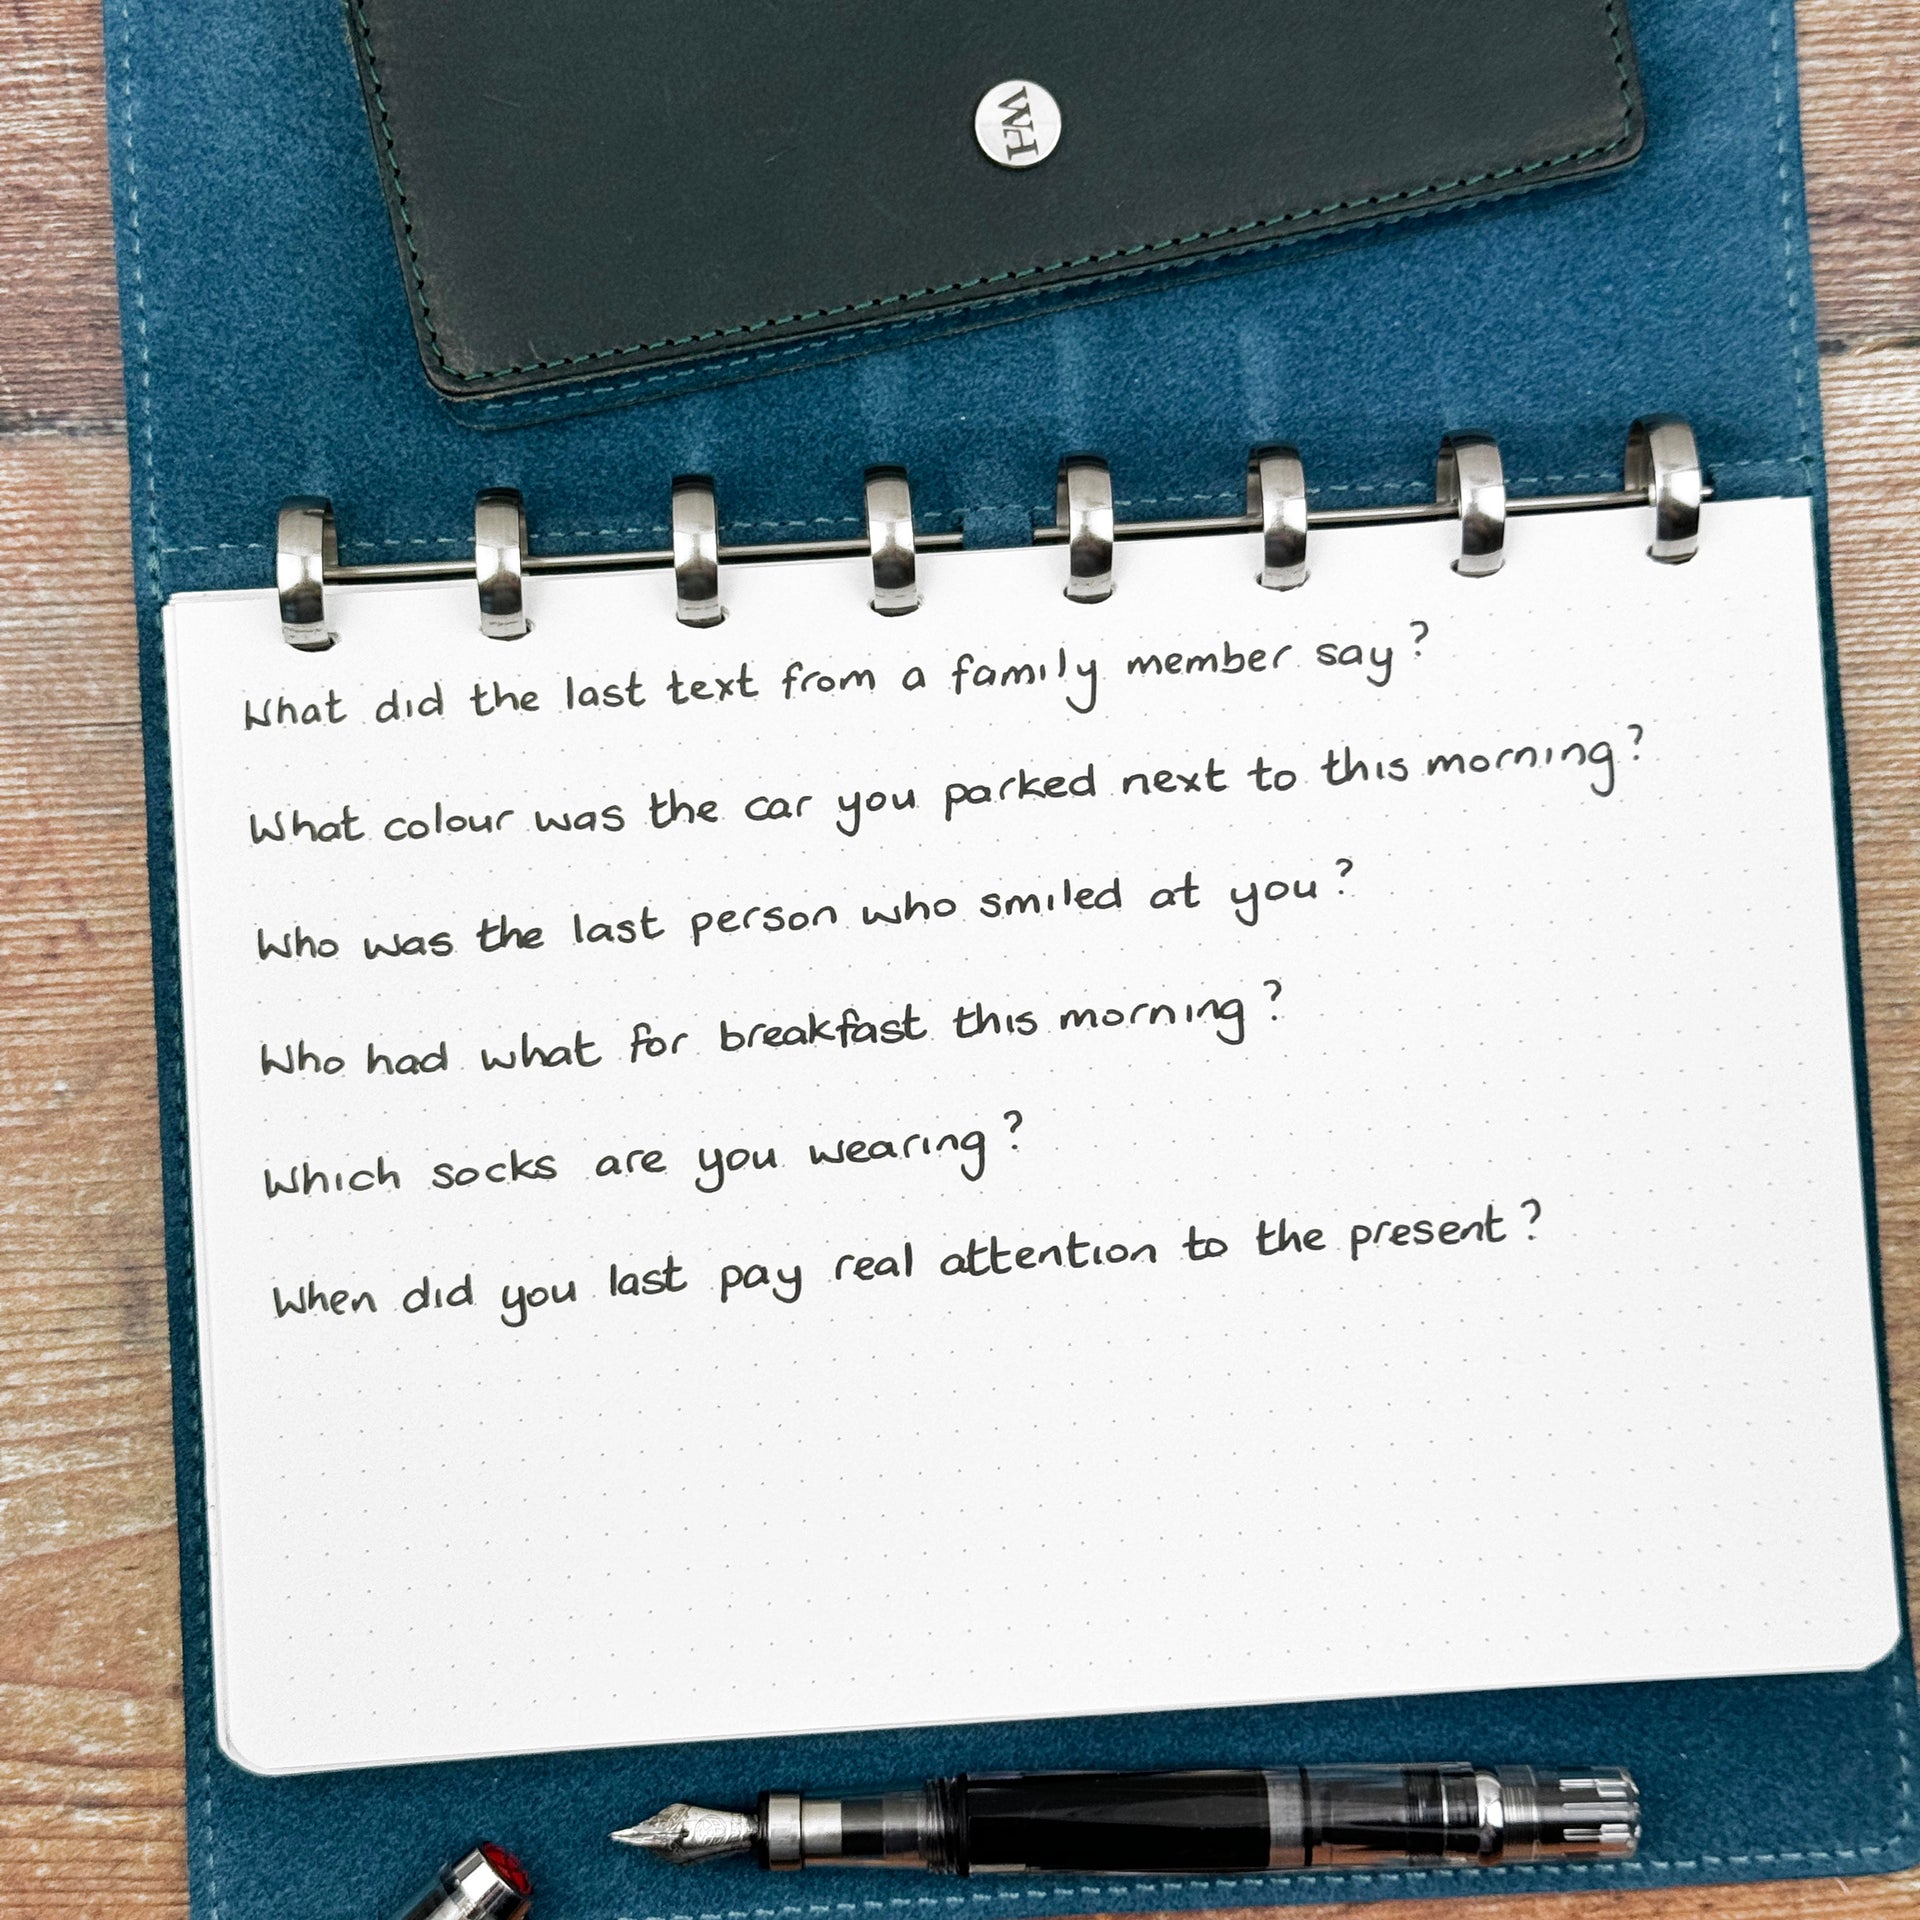 WH
What did the last text from a family member say?
What colour was the car you parked next to this morning?
Who was the last person who smiled at you?
Who had what for breakfast this morning?
Which socks are you wearing?
When did you last pay real attention to the present?